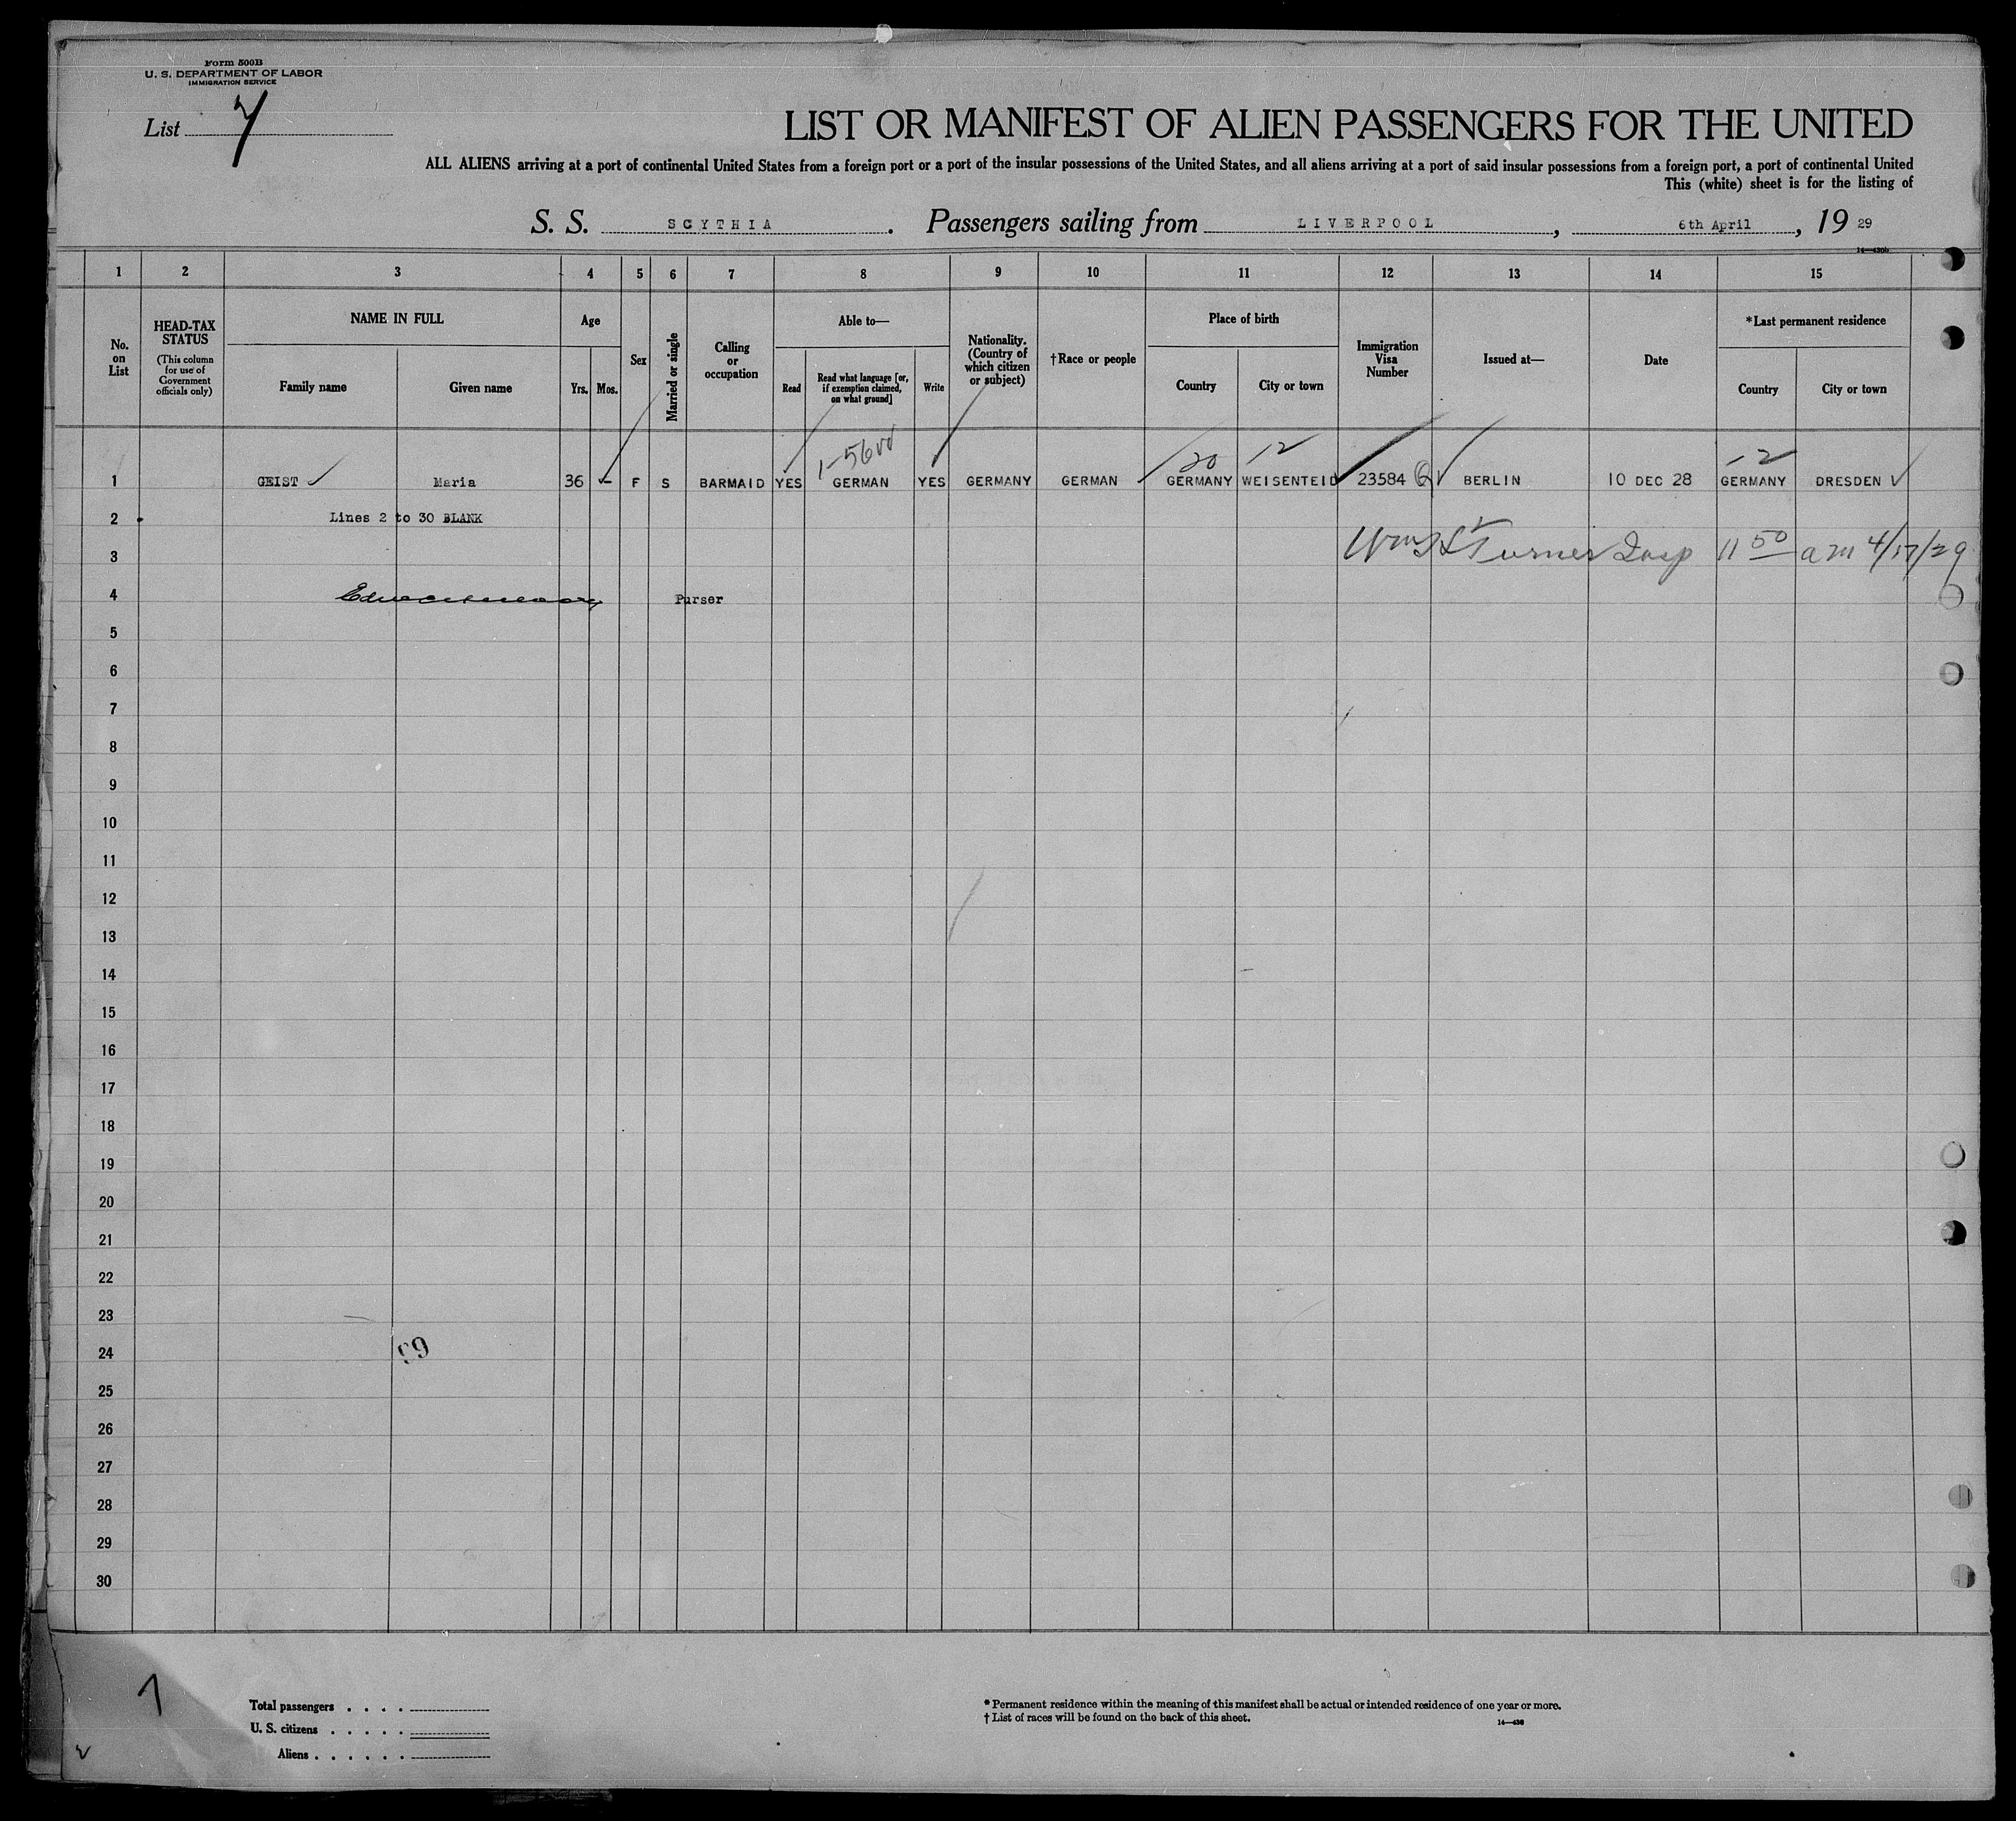 Form 500B
U. S. DEPARTMENT OF LABOR
IMMIGRATION SERVICE
List 7
LIST OR MANIFEST OF ALIEN PASSENGERS FOR THE UNITED
ALL ALIENS arriving at a port of continental United States from a foreign port or a port of the insular possessions of the United States, and all aliens arriving at a port of said insular possessions from a foreign port, a port of continental United
This (white) sheet is for the listing of
S. S. SCYTHIA. Passengers sailing from LIVERPOOL, 6th April, 19 29
14—430b
1 2 3 4 5 6 7 8 9 10 11 12 13 14 15
No. on List
HEAD-TAX STATUS
(This column for use of Government officials only)
NAME IN FULL
Family name
Given name
Age
Yrs. Mos.
Sex
Married or single
Calling or occupation
Able to—
Read
Read what language [or, if exemption claimed, on what ground]
Write
Nationality. (Country of which citizen or subject)
†Race or people
Place of birth
Country
City or town
Immigration Visa Number
Issued at—
Date
*Last permanent residence
Country
City or town
20 12 12
1 GEIST Maria 36 F S BARMAID YES GERMAN YES GERMANY GERMAN GERMANY WEISENTEID 23584 Q BERLIN 10 DEC 28 GERMANY DRESDEN
2 Lines 2 to 30 BLANK
3 Turner Insp 11 50 am 4/17/29
4 Purser
5
6
7
8
9
10
11
12
13
14
15
16
17
18
19
20
21
22
23
24
25
26
27
28
29
30
Total passengers
U. S. citizens
Aliens
* Permanent residence within the meaning of this manifest shall be actual or intended residence of one year or more.
† List of races will be found on the back of this sheet.
14—430